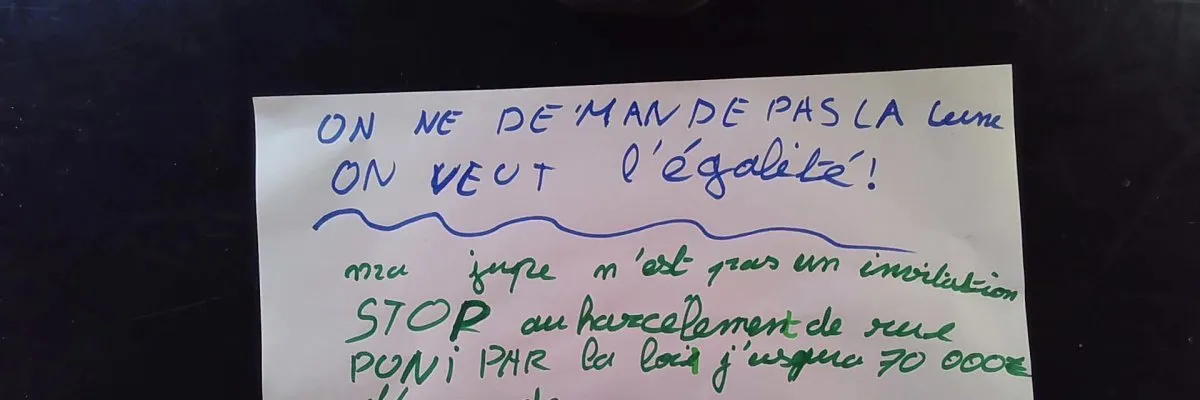 ON NE DE'MANDE PAS LA lune
ON VEUT l'égalité!
ma jupe n'est pas un invitation
STOP au harcèlement de rue
PUNi PAR la loi j'usqua 70 000€